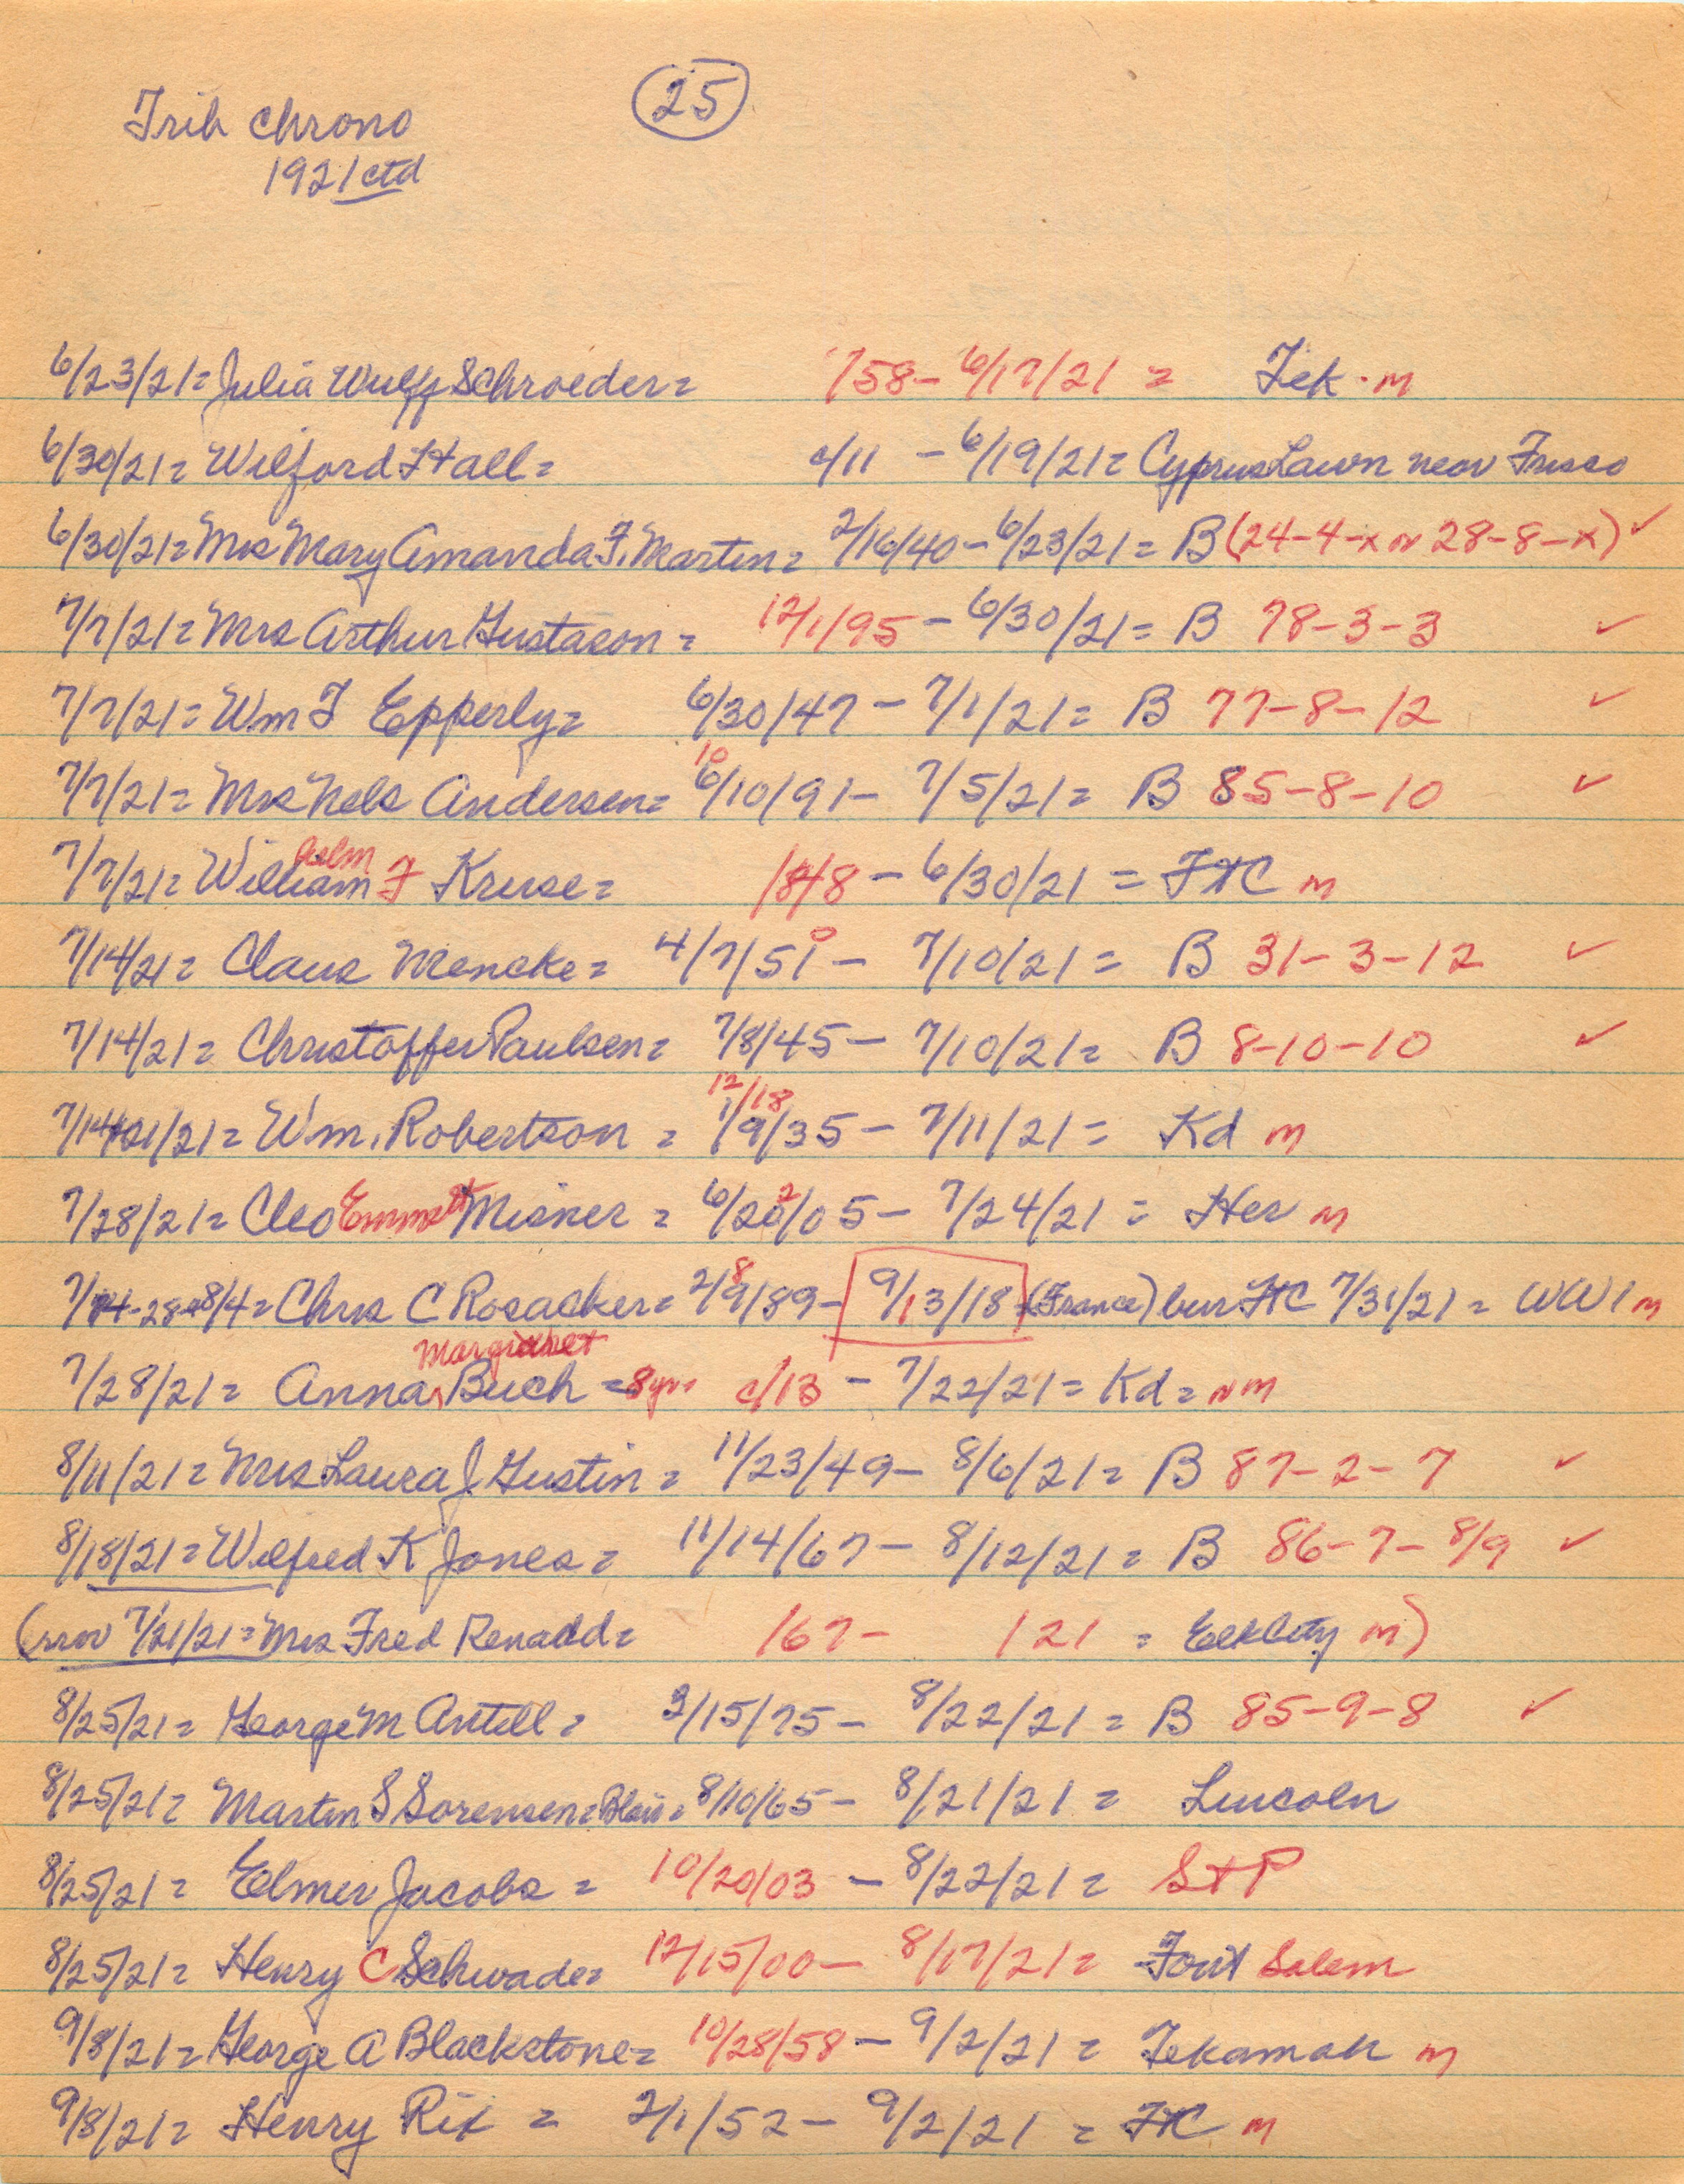 Trib Chrono
25
1921 ctd
6/23/21= Julia Wulff Schroeder= /58- 6/17/21 = Tek. m
6/30/21= Wilford Hall= c/11 - 6/19/21= Cyprus Lawn near Frisco
6/30/21= Mrs Mary Amanda F. Martin= 2/16/40-6/23/21= B (24-4-x n 28-8-x) ✓
7/7/21= Mrs Arthur Gustason= 12/1/95 - 6/30/21= B 78-3-3 ✓
7/7/21= Wm F Epperly= 6/30/47 - 7/1/21= B 77-8-12 ✓
10
7/7/21= Mrs Nels Andersen= 6/10/91- 7/5/21= B 85-8-10 ✓
helm
7/7/21= William F Kruse= 1848 - 6/30/21 = FtC m
0
7/14/21= Claus Mencke= 4/7/51 - 7/10/21= B 31-3-12 ✓
7/14/21= Christoffer Paulsen= 7/8/45- 7/10/21= B 8-10-10 ✓
12/18
7/14+21/21= Wm. Robertson = 1/9/35- 7/11/21= Kd m
2
7/28/21= Cleo Emmett Misner = 6/20/05- 7/24/21 = Her m
8
7/14-28+8/4= Chris C Rosacker= 2/9/89- 9/13/18 (France) bur FtC 7/31/21= WW1 m
Margrethet
7/28/21= Anna Buch =8yr= c/13 - 7/22/21= Kd= nm
8/11/21= Mrs Laura J. Gustin= 11/23/49- 8/6/21= B 87-2-7 ✓
8/18/21= Wilfred K Jones= 11/14/67- 8/12/21= B 86-7-8/9 ✓
( 7/21/21= Mrs Fred Renadd= /67- /21 = Elk City m)
8/25/21= George M Antill= 3/15/75- 8/22/21= B 85-9-8 ✓
8/25/21= Martin S Sorensen=Blair= 8/10/65- 8/21/21= Lincoln
8/25/21= Elmer Jacobs= 10/20/03 - 8/22/21= StP
8/25/21= Henry C Schwade= 12/15/00- 8/17/21= Font Salem
9/8/21= George A Blackstone= 10/28/58- 9/2/21= Tekamah m
9/8/21= Henry Rix = 2/1/52- 9/2/21 = FtC m